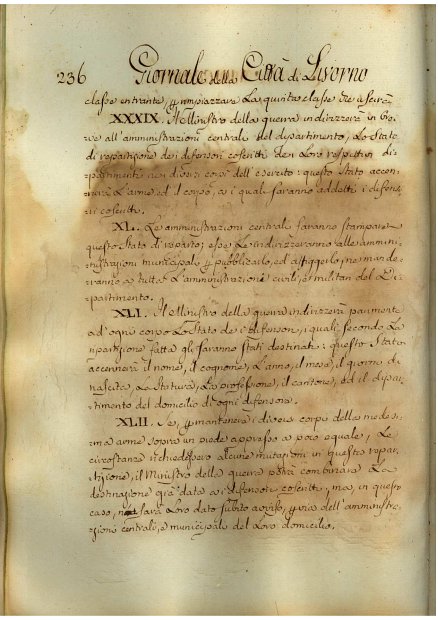 236 Giornale della Città di Livorno
classe entrante, rimpiazzarà La quinta classe
XXXIX. Il Ministro della guerra indirizzerà in
all'amministrazioni centrali del dipartimento, Lo Stato
di repartizione dei difensori coscritti den Loro respettivi di-
partimenti nei diversi corpi dell'esercito: questo Stato accen-
nerà L'arme, ed il corpo, a i quali saranno addetti i difenso-
ri coscritti.
XL. Le amministrazioni centrali faranno stampare
questo Stato di reparto; esse Le indirizzeranno alle ammini-
strazioni municipali p pubblicarlo, ed affiggerlo, ne man de-
ranno a tutte L'amministrazioni civili, e militari del Di-
partimento.
XLI. Il Ministro della guerra indirizzerà parimente
ad'ogni corpo Lo Stato de i difensori, i quali secondo La
ripartizione fatta gli saranno stati destinati: questo Stato
accennerà il nome, il cognome, L'anno, il mese, il giorno di
nascita, La Statura, La professione, il cantone, ed il dipar-
timento del domicilio di ogni difensore.
XLII. Se p mantenere i diversi corpi della medesi-
ma arme sovra un piede appresso a poco eguale, Le
circostanze richiedessero alcune mutazioni in questa repar-
tizione, il Ministro della guerra potrà combinare La
destinazione già data a i difensori coscritti, ma, in questo
caso, ne sarà Loro dato subito avviso, p via dell'amministra-
zioni centrali, e municipali del Loro domicilio.